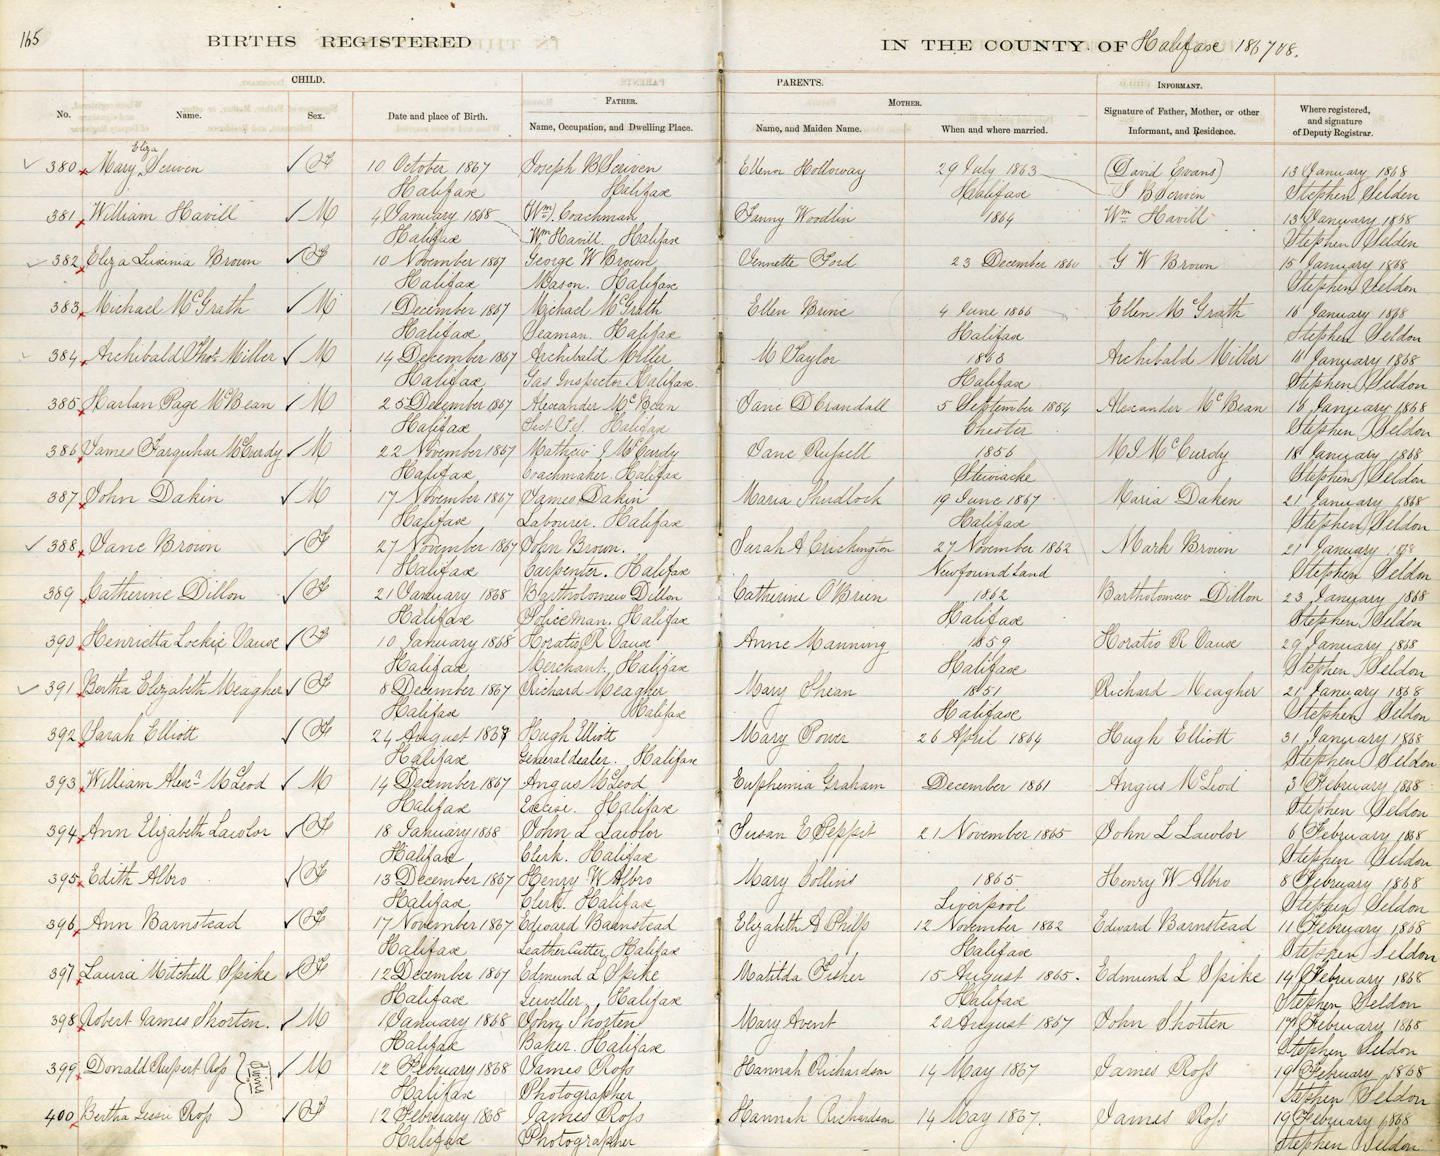 165
BIRTHS REGISTERED IN THE COUNTY OF Halifax 1867 & 8.
CHILD. PARENTS. INFORMANT.
FATHER. MOTHER.
No. Name. Sex. Date and place of Birth. Name, Occupation, and Dwelling Place. Name, and Maiden Name. When and where married. Signature of Father, Mother, or other Informant, and Residence. Where registered, and signature of Deputy Registrar.
Eliza
380 Mary Scriven F 10 October 1867 Joseph B Scriven Ellenor Holloway 29 July 1863 (David Evans) 13 January 1868
Halifax Halifax Halifax J B Scrivin Stephen Selden
381 William Havill M 4 January 1868 (Wm) Coachman Fanny Woodlin 1864 Wm Havill 13 January 1868
Halifax Wm Havill. Halifax Stephen Selden
382 Eliza Lusinia Brown F 10 November 1867 George W Brown Vennette Ford 23 December 1860 G W Brown 15 January 1868
Halifax Mason. Halifax Stephen Seldon
383 Michael McGrath M 1 December 1867 Michael McGrath Ellen Brine 4 June 1866 Ellen McGrath 16 January 1868
Halifax Seaman. Halifax Halifax Stephen Seldon
384 Archibald Thos. Miller M 14 December 1867 Archibald Miller M Taylor 1863 Archibald Miller 16 January 1868
Halifax Gas Inspector Halifax. Halifax Stephen Seldon
385 Harlan Page McBean M 25 December 1867 Alexander McBean Jane D Crandall 5 September 1864 Alexander McBean 16 January 1868
Halifax Halifax Chester Stephen Seldon
386 James Farquhar McCurdy M 22 November 1867 Mathew J McCurdy Jane Russell 1856 M J McCurdy 18 January 1868
Halifax Coachmaker. Halifax Stewiacke Stephen Seldon
387 John Dakin M 17 November 1867 James Dakin Maria Shurdlock 19 June 1867 Maria Daken 21 January 1868
Halifax Labourer. Halifax Halifax Stephen Seldon
388 Jane Brown F 27 November 1867 John Brown. Sarah A Crickington 27 November 1862 Mark Brown 21 January
Halifax Carpenter. Halifax Newfoundland Stephen Seldon
389 Catherine Dillon F 21 January 1868 Bartholomew Dillon Catherine O'Brien 1862 Bartholomew Dillon 23 January 1868
Halifax Policeman. Halifax Halifax Stephen Seldon
390 Henrietta Lockie Vaux F 10 January 1868 Horatio R Vaux Anne Manning 1859 Horatio R Vaux 29 January 1868
Halifax Merchant. Halifax Halifax Stephen Seldon
391 Bertha Elizabeth Meagher F 8 December 1867 Richard Meagher Mary Shean 1851 Richard Meagher 21 January 1868
Halifax Halifax Halifax Stephen Seldon
392 Sarah Elliott F 24 August 1867 Hugh Elliott Mary Power 26 April 1864 Hugh Elliott 31 January 1868
Halifax General dealer. Halifax Stephen Seldon
393 William Alexr McLeod M 14 December 1867 Angus McLeod Euphemia Graham December 1861 Angus McLeod 3 February 1868
Halifax Excise. Halifax Stephen Seldon
394 Ann Elizabeth Lawlor F 18 January 1868 John L Lawlor Susan E Peppit 21 November 1865 John L Lawlor 6 February 1868
Halifax Clerk. Halifax Stephen Seldon
395 Edith Albro F 13 December 1867 Henry W Albro Mary Collins 1865 Henry W Albro 8 February 1868
Halifax Clerk. Halifax Liverpool Stephen Seldon
396 Ann Barnstead F 17 November 1867 Edward Barnstead Elizabeth A Philp 12 November 1862 Edward Barnstead 11 February 1868
Halifax Leather Cutter, Halifax Halifax Stephen Seldon
397 Laura Mitchell Spike F 12 December 1867 Edmund L Spike Matilda Fisher 15 August 1865. Edmund L Spike 14 February 1868
Halifax Jeweller, Halifax Halifax Stephen Seldon
398 Robert James Shorten. M 1 January 1868 John Shorten Mary Avent 20 August 1867 John Shorten 17 February 1868
Halifax Baker. Halifax Stephen Seldon
399 Donald Rupert Ross Twins M 12 February 1868 James Ross Hannah Richardson 14 May 1867 James Ross 19 February 1868
Halifax Photographer Stephen Seldon
400 Bertha Jessie Ross F 12 February 1868 James Ross Hannah Richardson 14 May 1867. James Ross 19 February 1868
Halifax Photographer Stephen Seldon